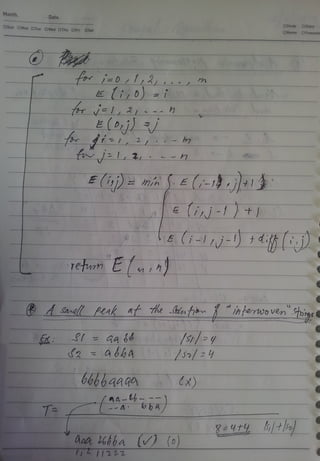 Month Date
for i=0,1,2,...., m
E(i,0) = i
for j=1,2,....n
E(0,j) = j
for i=1,2,....m
for j=1,2,....n
E(i,j) = min { E(i-1,j)+1
E(i,j-1)+1
E(i-1,j-1)+diff(i,j)
return E(m,n)
A small peak at the solution of "interwoven" strings
Ex. S1 = aabb |S1|=4
S2 = abba |S2|=4
bbbbaaaa (x)
T=
8=4+4 |S1|+|S2|
(✓)